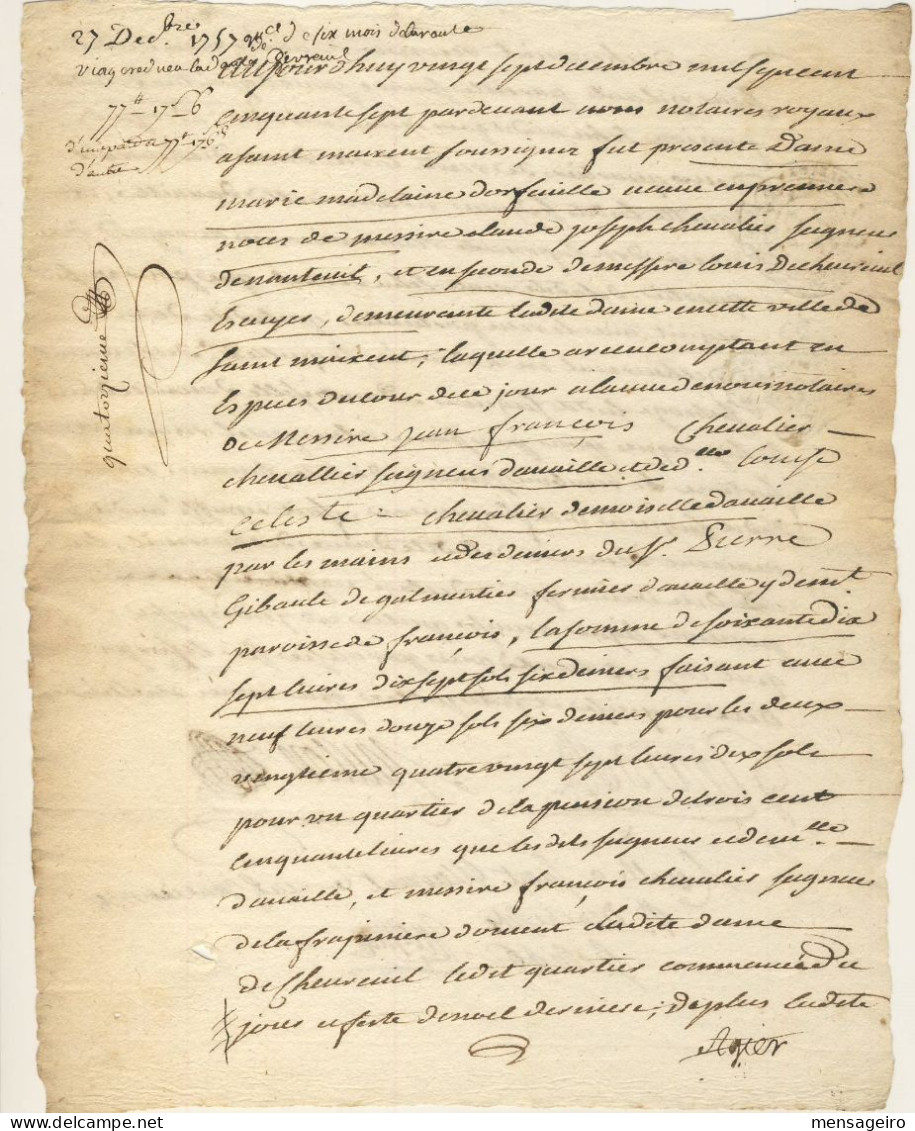 27 Decbre. 1757 qce. de six mois de la rente
viagere due a la de de Chevreuil
77tt 17s 6
d'une part 77tt 17s 6d
d'autre
quatorzieme
Aujourd'huy vingt sept decembre mil sept cent
cinquante sept pardevant nous notaires royaux
a saint maixent soussignez fut presente Dame
marie madelaine dorfeuille veuve en premiere
noces de messire claude joseph chevalier seigneur
de nanteuil, et en seconde de messire louis De cheureuil
Ecuyer, demeurante ladite dame en cette ville de
saint maixent; laquelle a reçu comptant en
Especes du cour de ce jour a la vue de nous notaires
De Messire jean françois Chevalier
chevallier seigneur d'availle et de dlle. Louise
Celeste chevalier demoiselle d'availle
par les mains et des deniers du Sr. Pierre
Gibault de galmenties fermier d'availle y demt.
paroisse de françois, la somme de soixante dix
sept livres dix sept sols six deniers faisant avec
neuf livres douze sols six deniers pour les deux
vingtieme quatre vingt sept livres dix sols
pour un quartier de la pension de trois cent
cinquante livres que lesdits seigneur et demlle.
d'availle, et messire françois chevalier seigneur
de la frapiniere doivent a ladite dame
de Cheureuil ledit quartier commencé du
jour et feste de noel derniere; de plus ladite
Agier
mensageiro